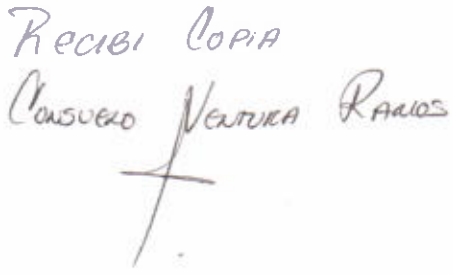 Recibi Copia
Consuelo Ventura Ramos